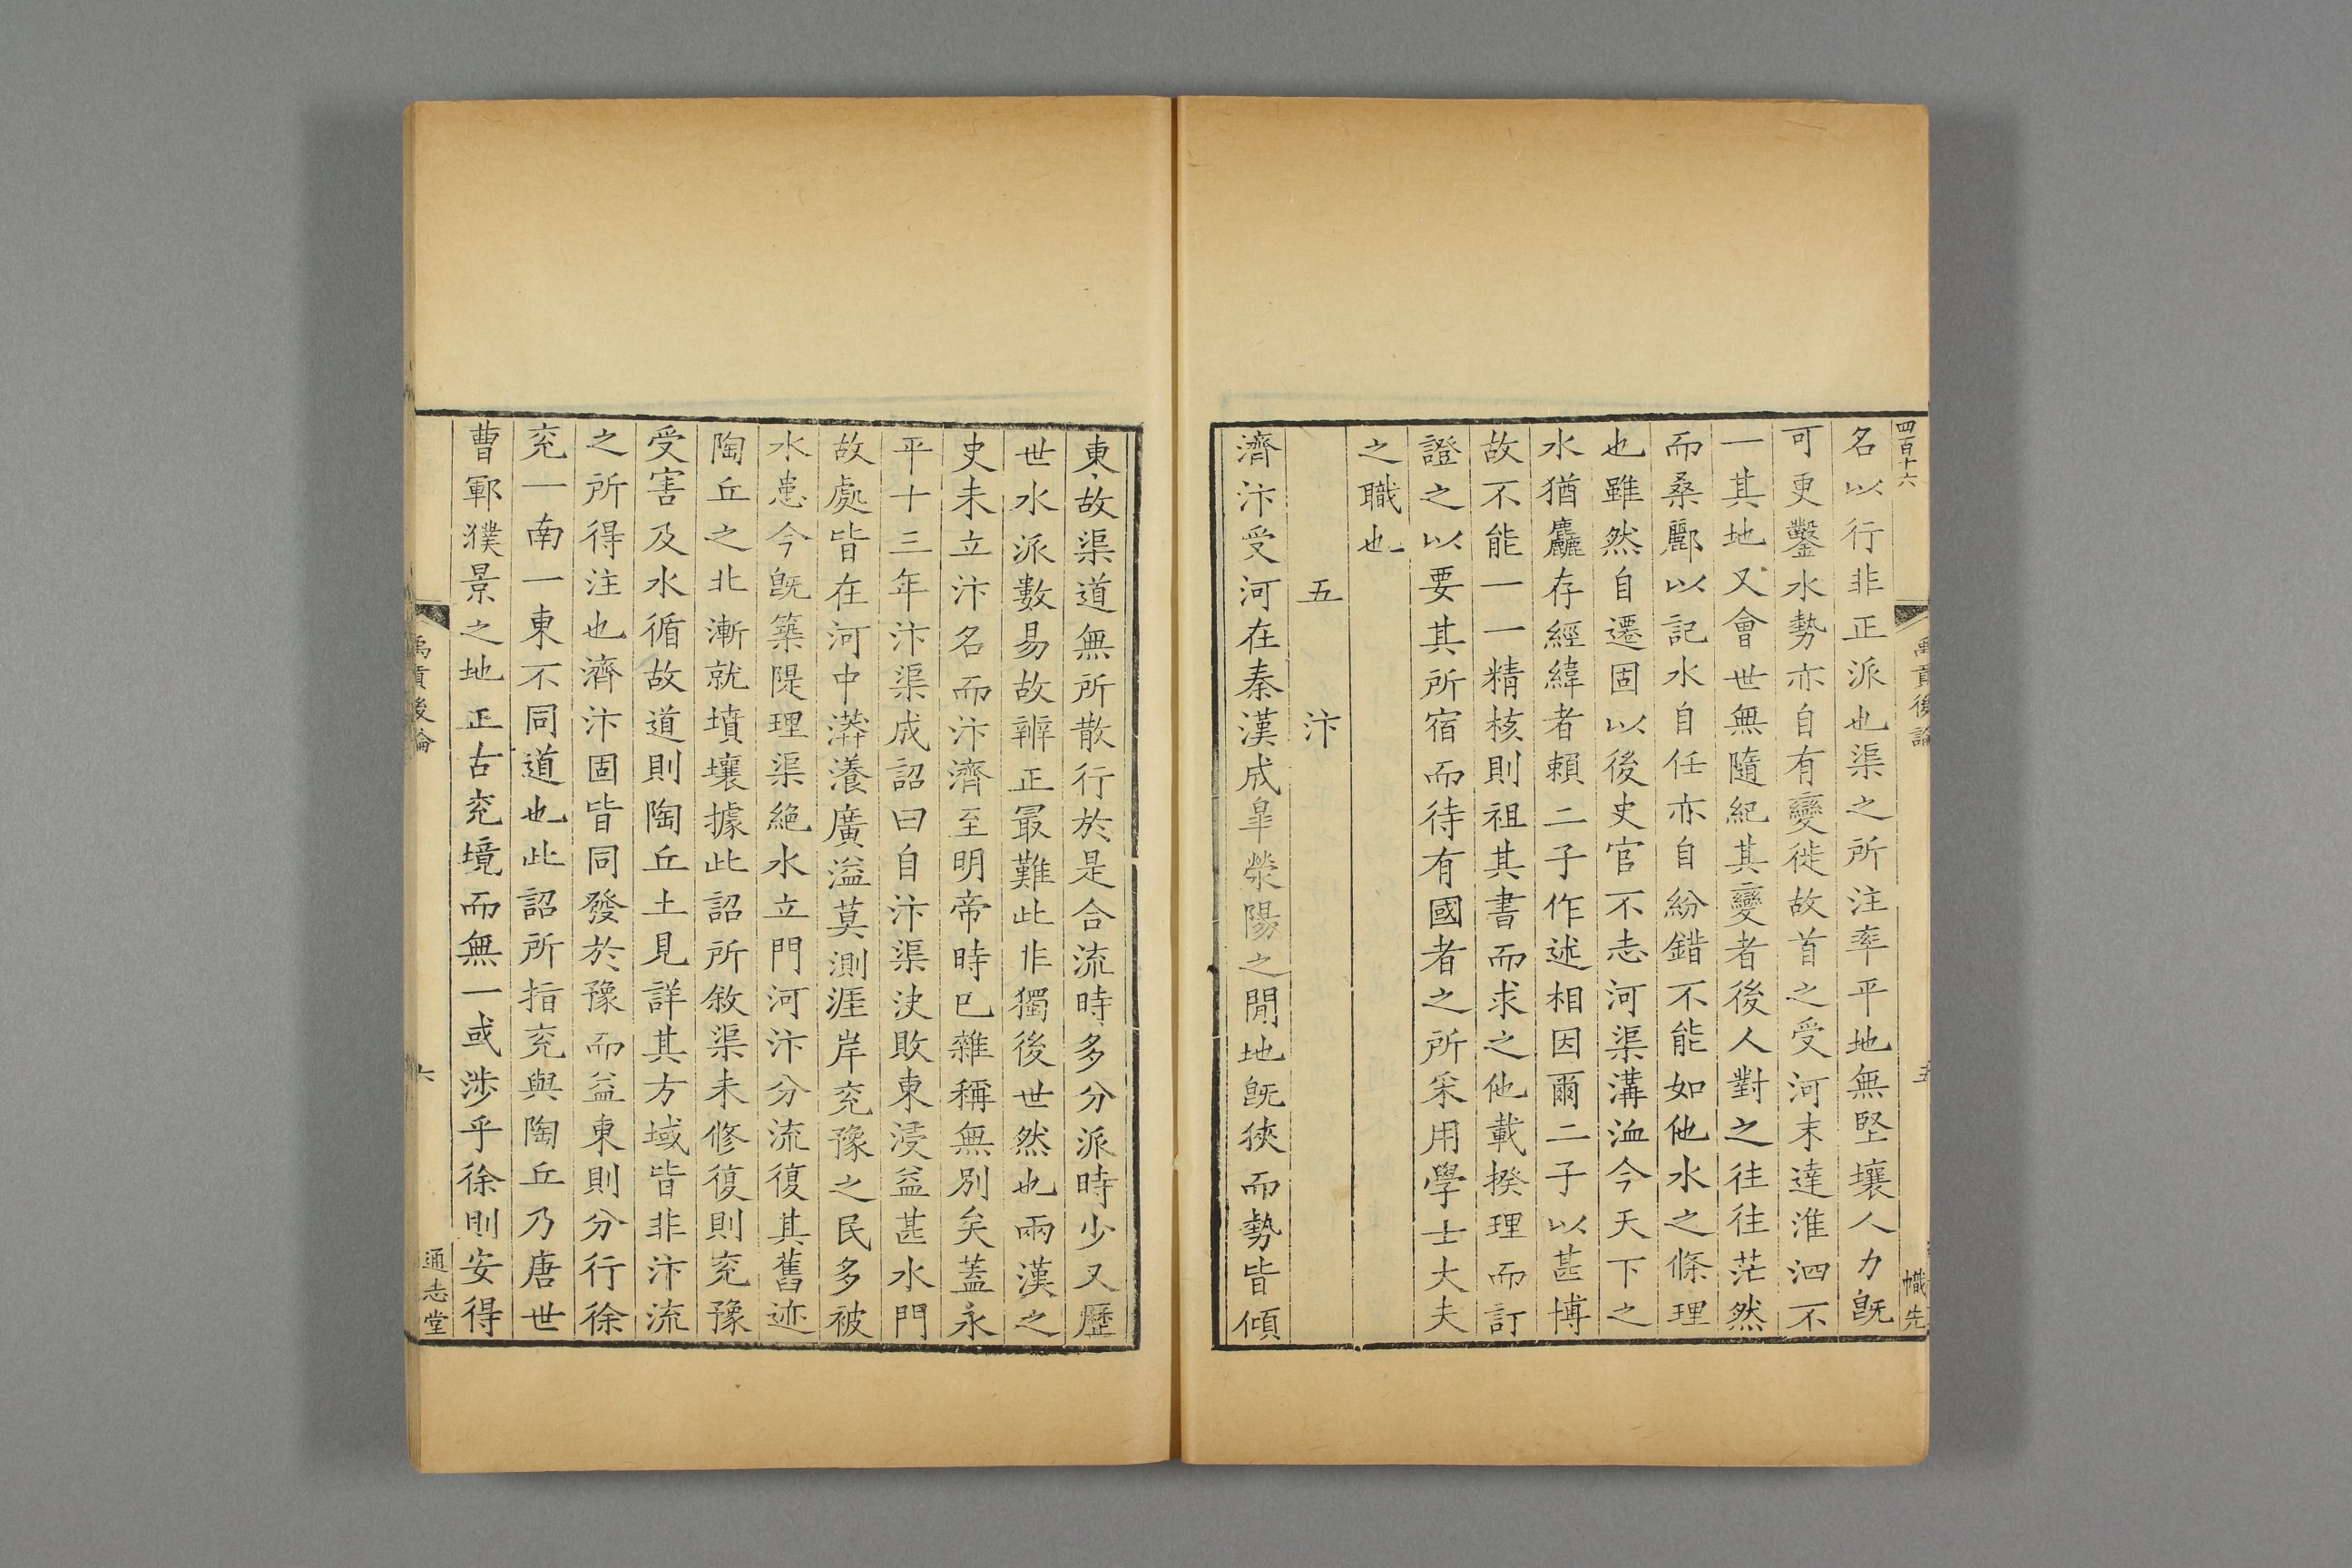 四百十六
禹貢後論
五
幟先
名以行非正派也渠之所注率平地無堅壤人力旣
可更鑿水勢亦自有變徙故首之受河末達淮泗不
一其地又會世無隨紀其變者後人對之往往茫然
而桑酈以記水自任亦自紛錯不能如他水之條理
也雖然自遷固以後史官不志河渠溝洫今天下之
水猶麤存經緯者賴二子作述相因爾二子以甚博
故不能一一精核則祖其書而求之他載揆理而訂
證之以要其所宿而待有國者之所采用學士大夫
之職也
五 汴
濟汴受河在秦漢成皐滎陽之閒地旣狹而勢皆傾
東故渠道無所散行於是合流時多分派時少又歷
世水派數易故辨正最難此非獨後世然也兩漢之
史未立汴名而汴濟至明帝時已雜稱無別矣蓋永
平十三年汴渠成詔曰自汴渠決敗東浸益甚水門
故處皆在河中漭瀁廣溢莫測涯岸兖豫之民多被
水患今旣築隄理渠絶水立門河汴分流復其舊迹
陶丘之北漸就墳壤據此詔所敘渠未修復則兖豫
受害及水循故道則陶丘土見詳其方域皆非汴流
之所得注也濟汴固皆同發於豫而益東則分行徐
兖一南一東不同道也此詔所指兖與陶丘乃唐世
曹鄆濮景之地正古兖境而無一或涉乎徐則安得
禹貢後論
六
通志堂